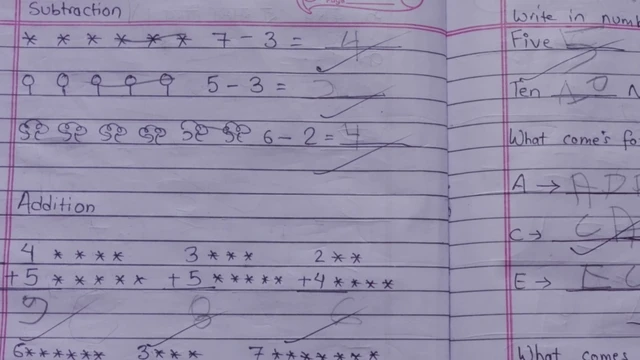 Subtraction
* * * * * * 7 - 3 = 4
5 - 3 =
6 - 2 = 4
Addition
4 * * * * 3 * * * 2 * *
+5 * * * * * +5 * * * * * +4 * * * *
9 8 6
6 * * * * * * 3 * * * 7 * * * * * * *
Write in num
Five
Ten
What come's fo
A →
C →
E →
What comes